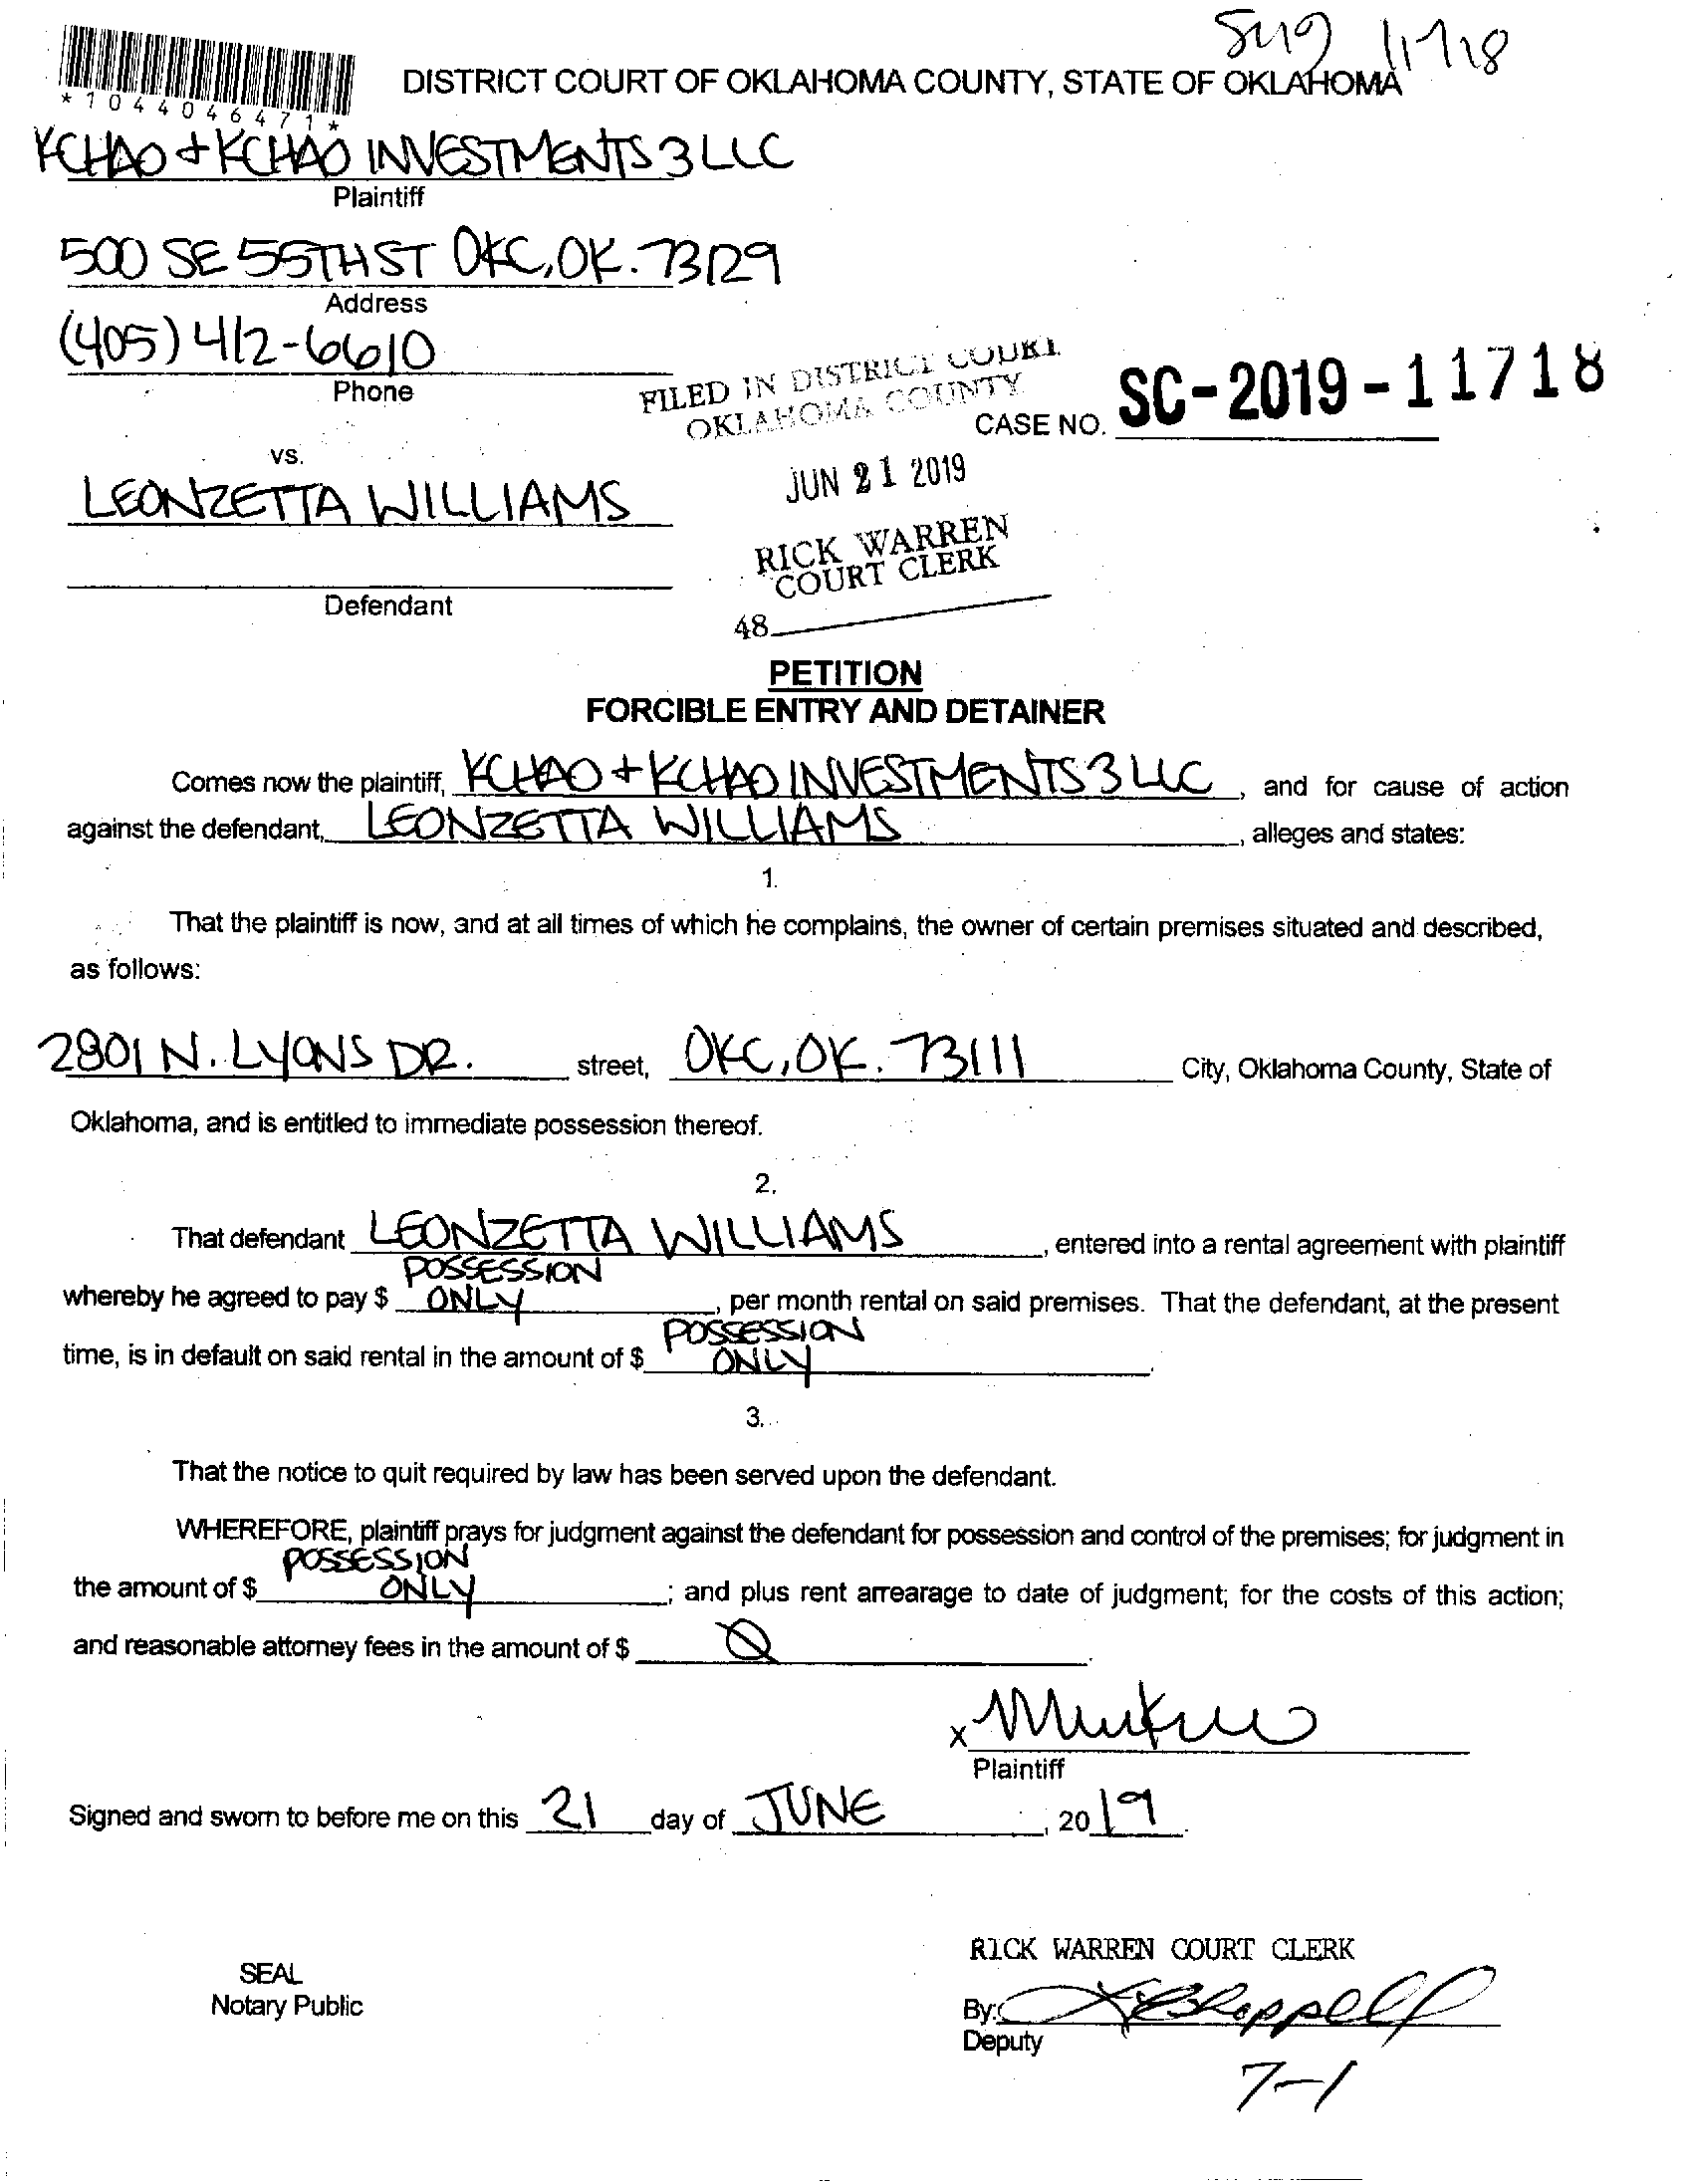 11718
DISTRICT COURT OF OKLAHOMA COUNTY, STATE OF OKLAHOMA
*1044046471*
KCHAO + KCHAO INVESTMENTS 3 LLC
Plaintiff
500 SE 55TH ST OKC, OK. 73129
Address
(405) 412-6610
Phone
FILED IN DISTRICT COURT
OKLAHOMA COUNTY
CASE NO. SC-2019-11718
vs.
JUN 21 2019
LEONZETTA WILLIAMS
RICK WARREN
COURT CLERK
Defendant
48
PETITION
FORCIBLE ENTRY AND DETAINER
Comes now the plaintiff, KCHAO + KCHAO INVESTMENTS 3 LLC, and for cause of action
against the defendant, LEONZETTA WILLIAMS, alleges and states:
1.
That the plaintiff is now, and at all times of which he complains, the owner of certain premises situated and described,
as follows:
2801 N. LYONS DR. street, OKC, OK. 73111 City, Oklahoma County, State of
Oklahoma, and is entitled to immediate possession thereof.
2.
That defendant LEONZETTA WILLIAMS, entered into a rental agreement with plaintiff
POSSESSION
whereby he agreed to pay $ ONLY, per month rental on said premises. That the defendant, at the present
POSSESSION
time, is in default on said rental in the amount of $ ONLY.
3.
That the notice to quit required by law has been served upon the defendant.
WHEREFORE, plaintiff prays for judgment against the defendant for possession and control of the premises; for judgment in
POSSESSION
the amount of $ ONLY; and plus rent arrearage to date of judgment; for the costs of this action;
and reasonable attorney fees in the amount of $ Ø.
X
Plaintiff
Signed and sworn to before me on this 21 day of JUNE, 2019.
RICK WARREN COURT CLERK
SEAL
Notary Public
By:
Deputy
7-1